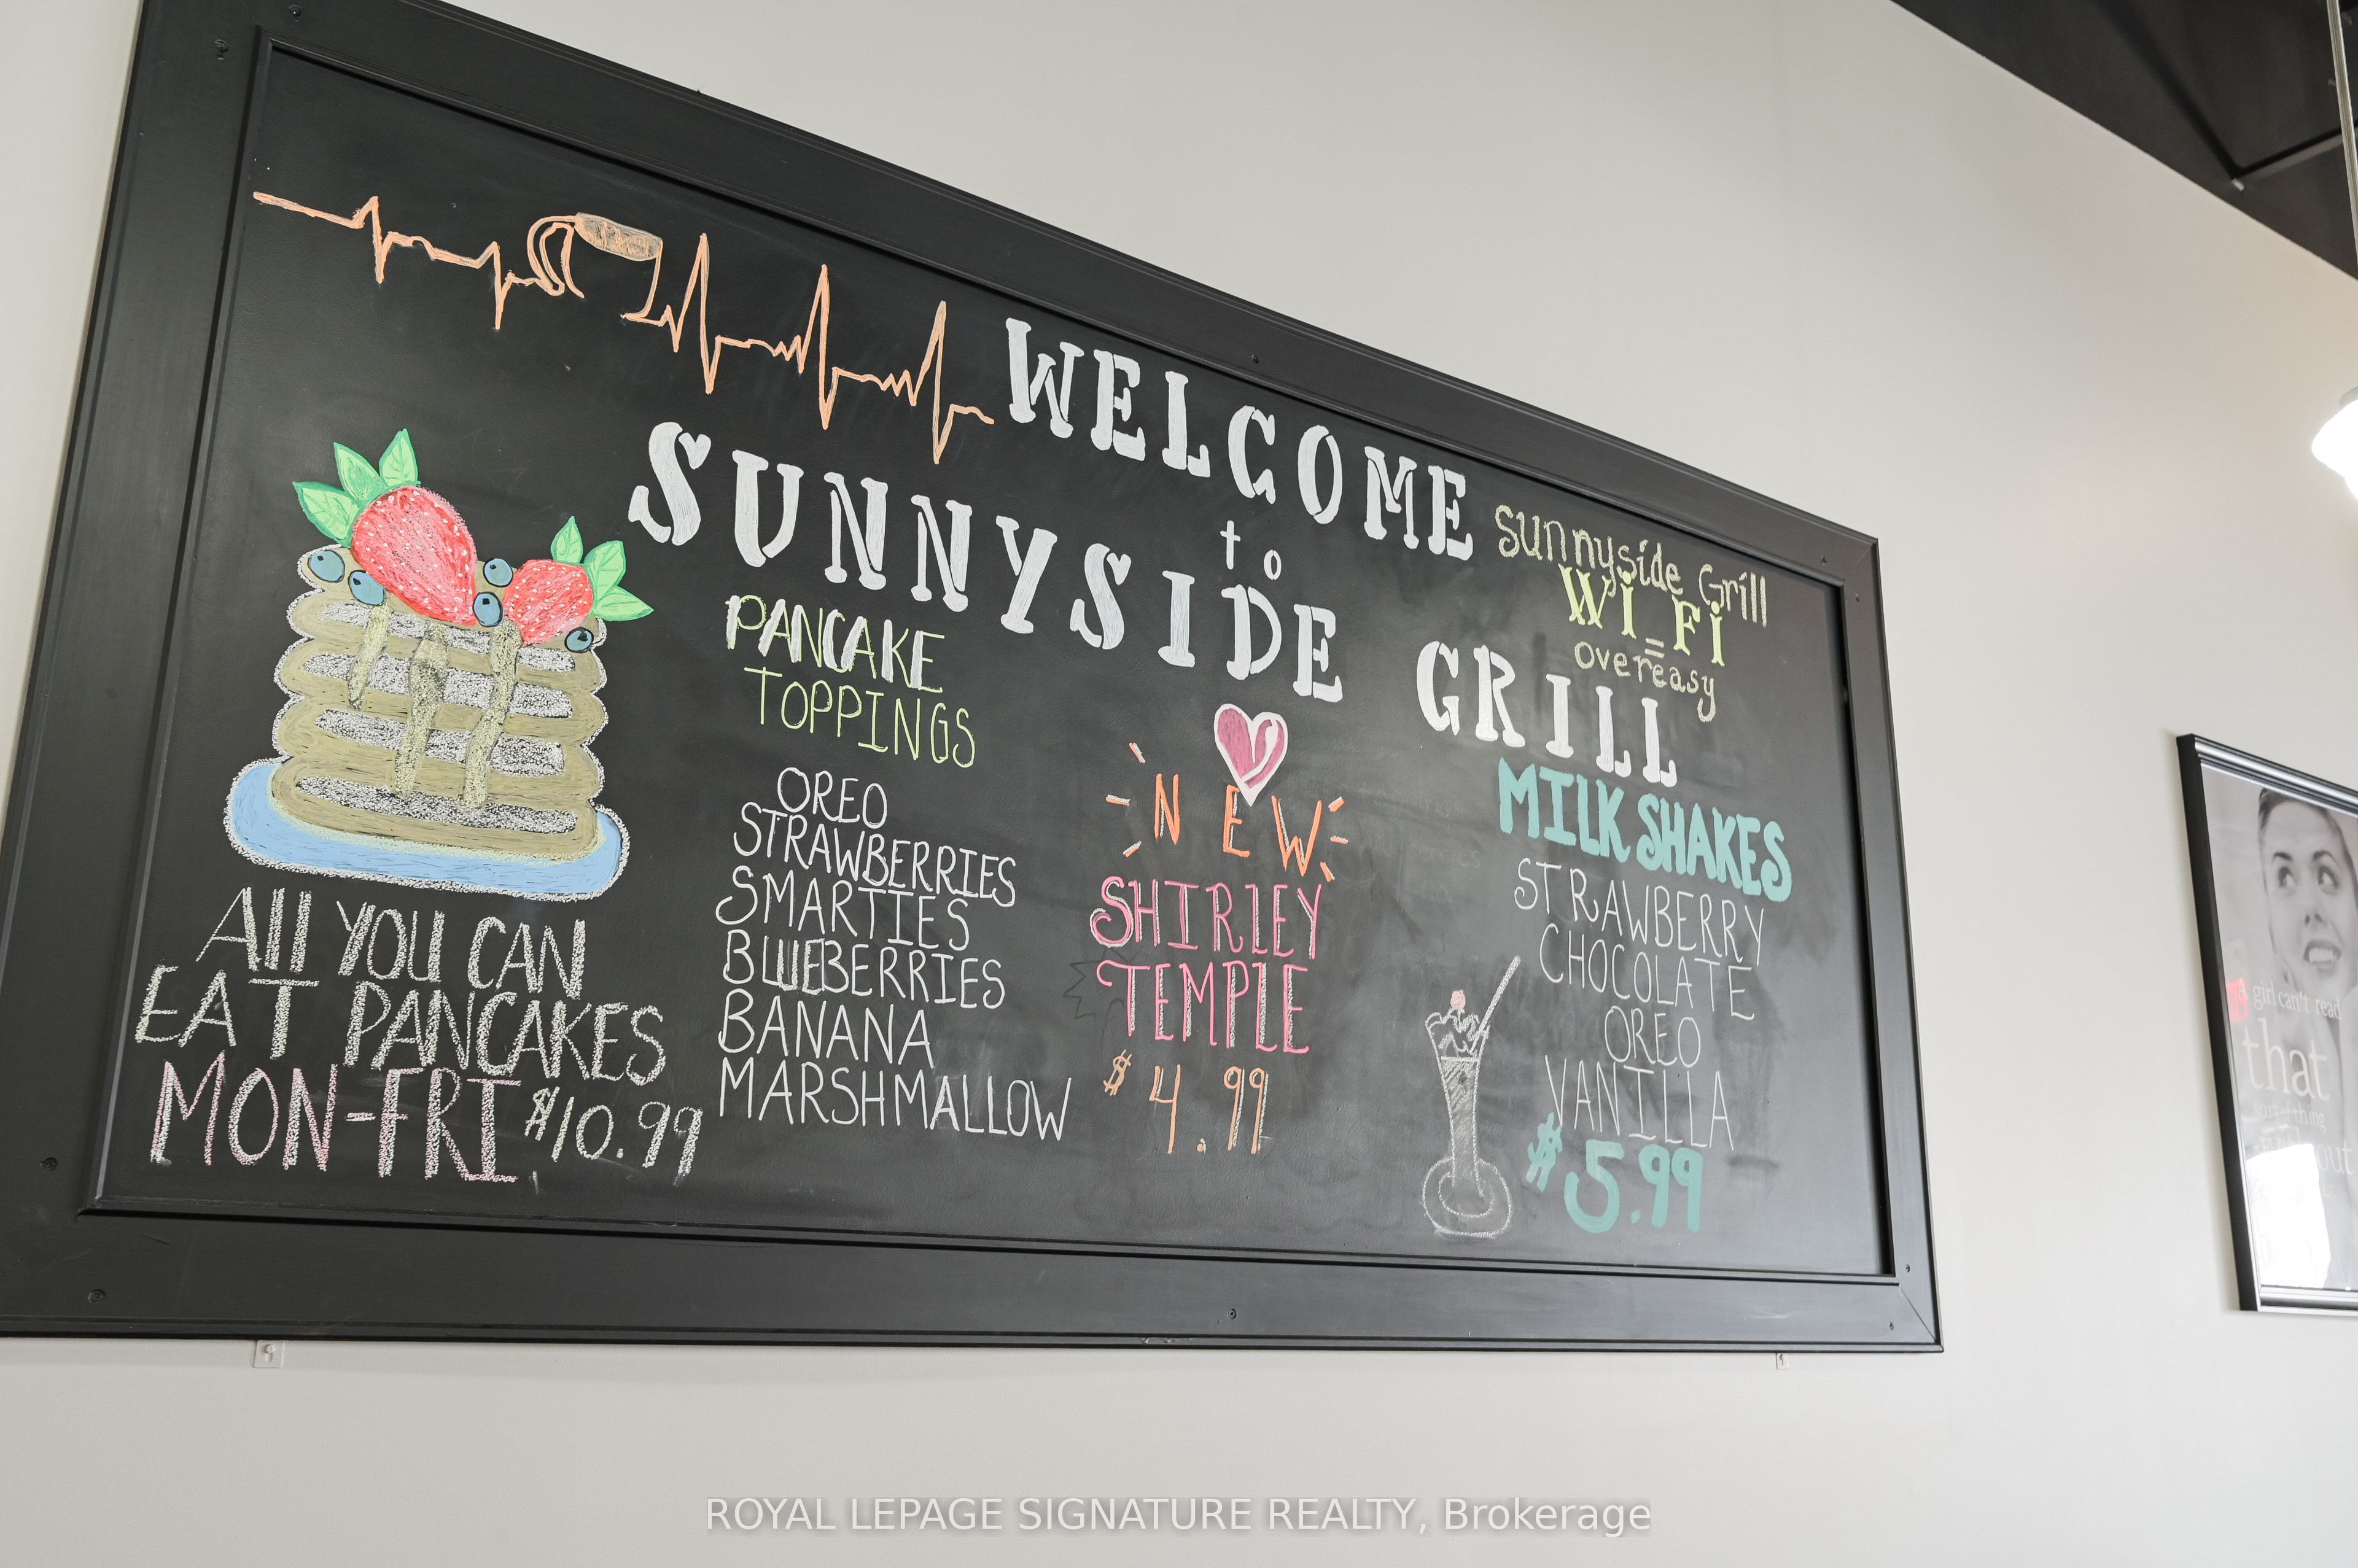 WELCOME
to
SUNNYSIDE GRILL
sunnyside Grill
WiFi
=
overeasy
All YOU CAN
EAT PANCAKES
MON-FRI $10.99
PANCAKE
TOPPINGS
OREO
STRAWBERRIES
SMARTIES
BLUEBERRIES
BANANA
MARSHMALLOW
NEW
SHIRLEY
TEMPLE
$4.99
MILKSHAKES
STRAWBERRY
CHOCOLATE
OREO
VANILLA
$5.99
A girl can't read
that
sort of thing
out
ROYAL LEPAGE SIGNATURE REALTY, Brokerage